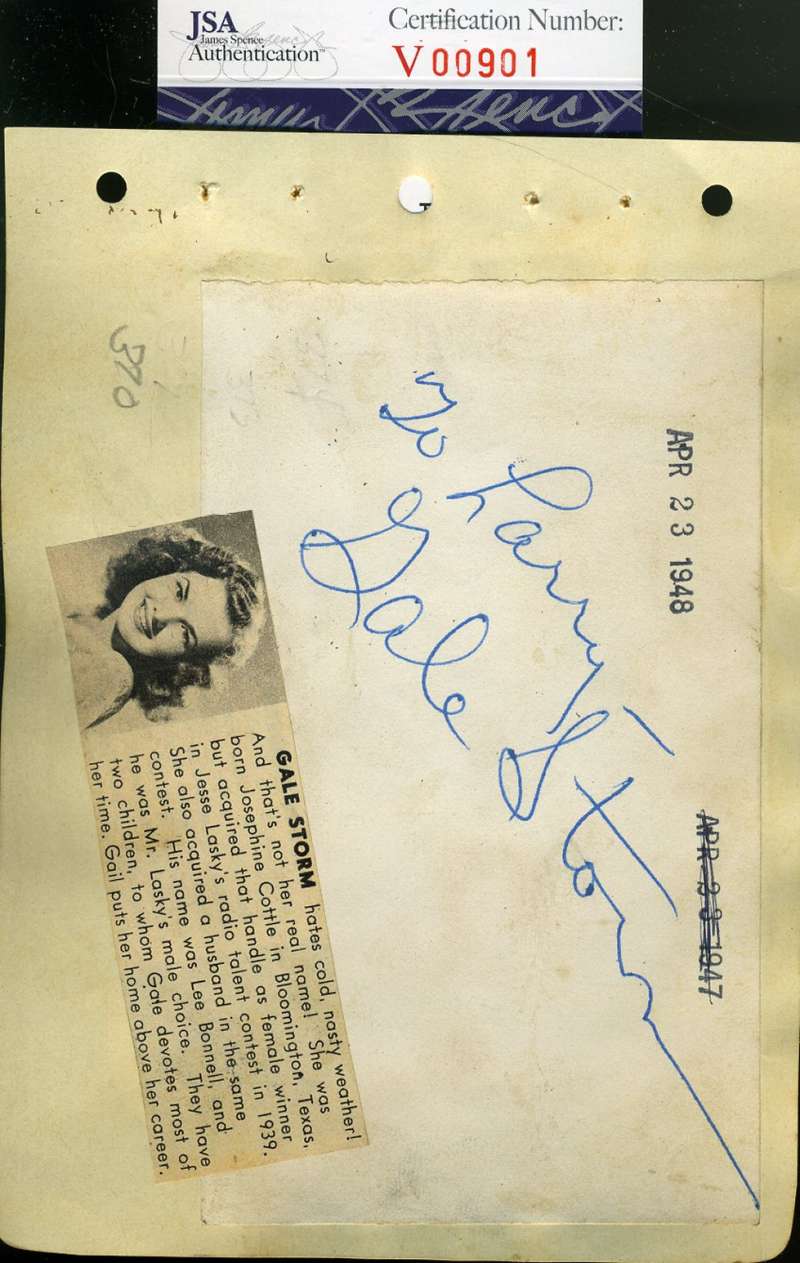 JSA
James Spence
Authentication™
Certification Number:
V00901
390
To Larry
Gale Storm
APR 23 1948
APR 23 1947
GALE STORM hates cold, nasty weather!
And that's not her real name! She was
born Josephine Cottle in Bloomington, Texas,
but acquired that handle as female winner
in Jesse Lasky's radio talent contest in 1939.
She also acquired a husband in the same
contest. His name was Lee Bonnell, and
he was Mr. Lasky's male choice. They have
two children, to whom Gale devotes most of
her time. Gail puts her home above her career.